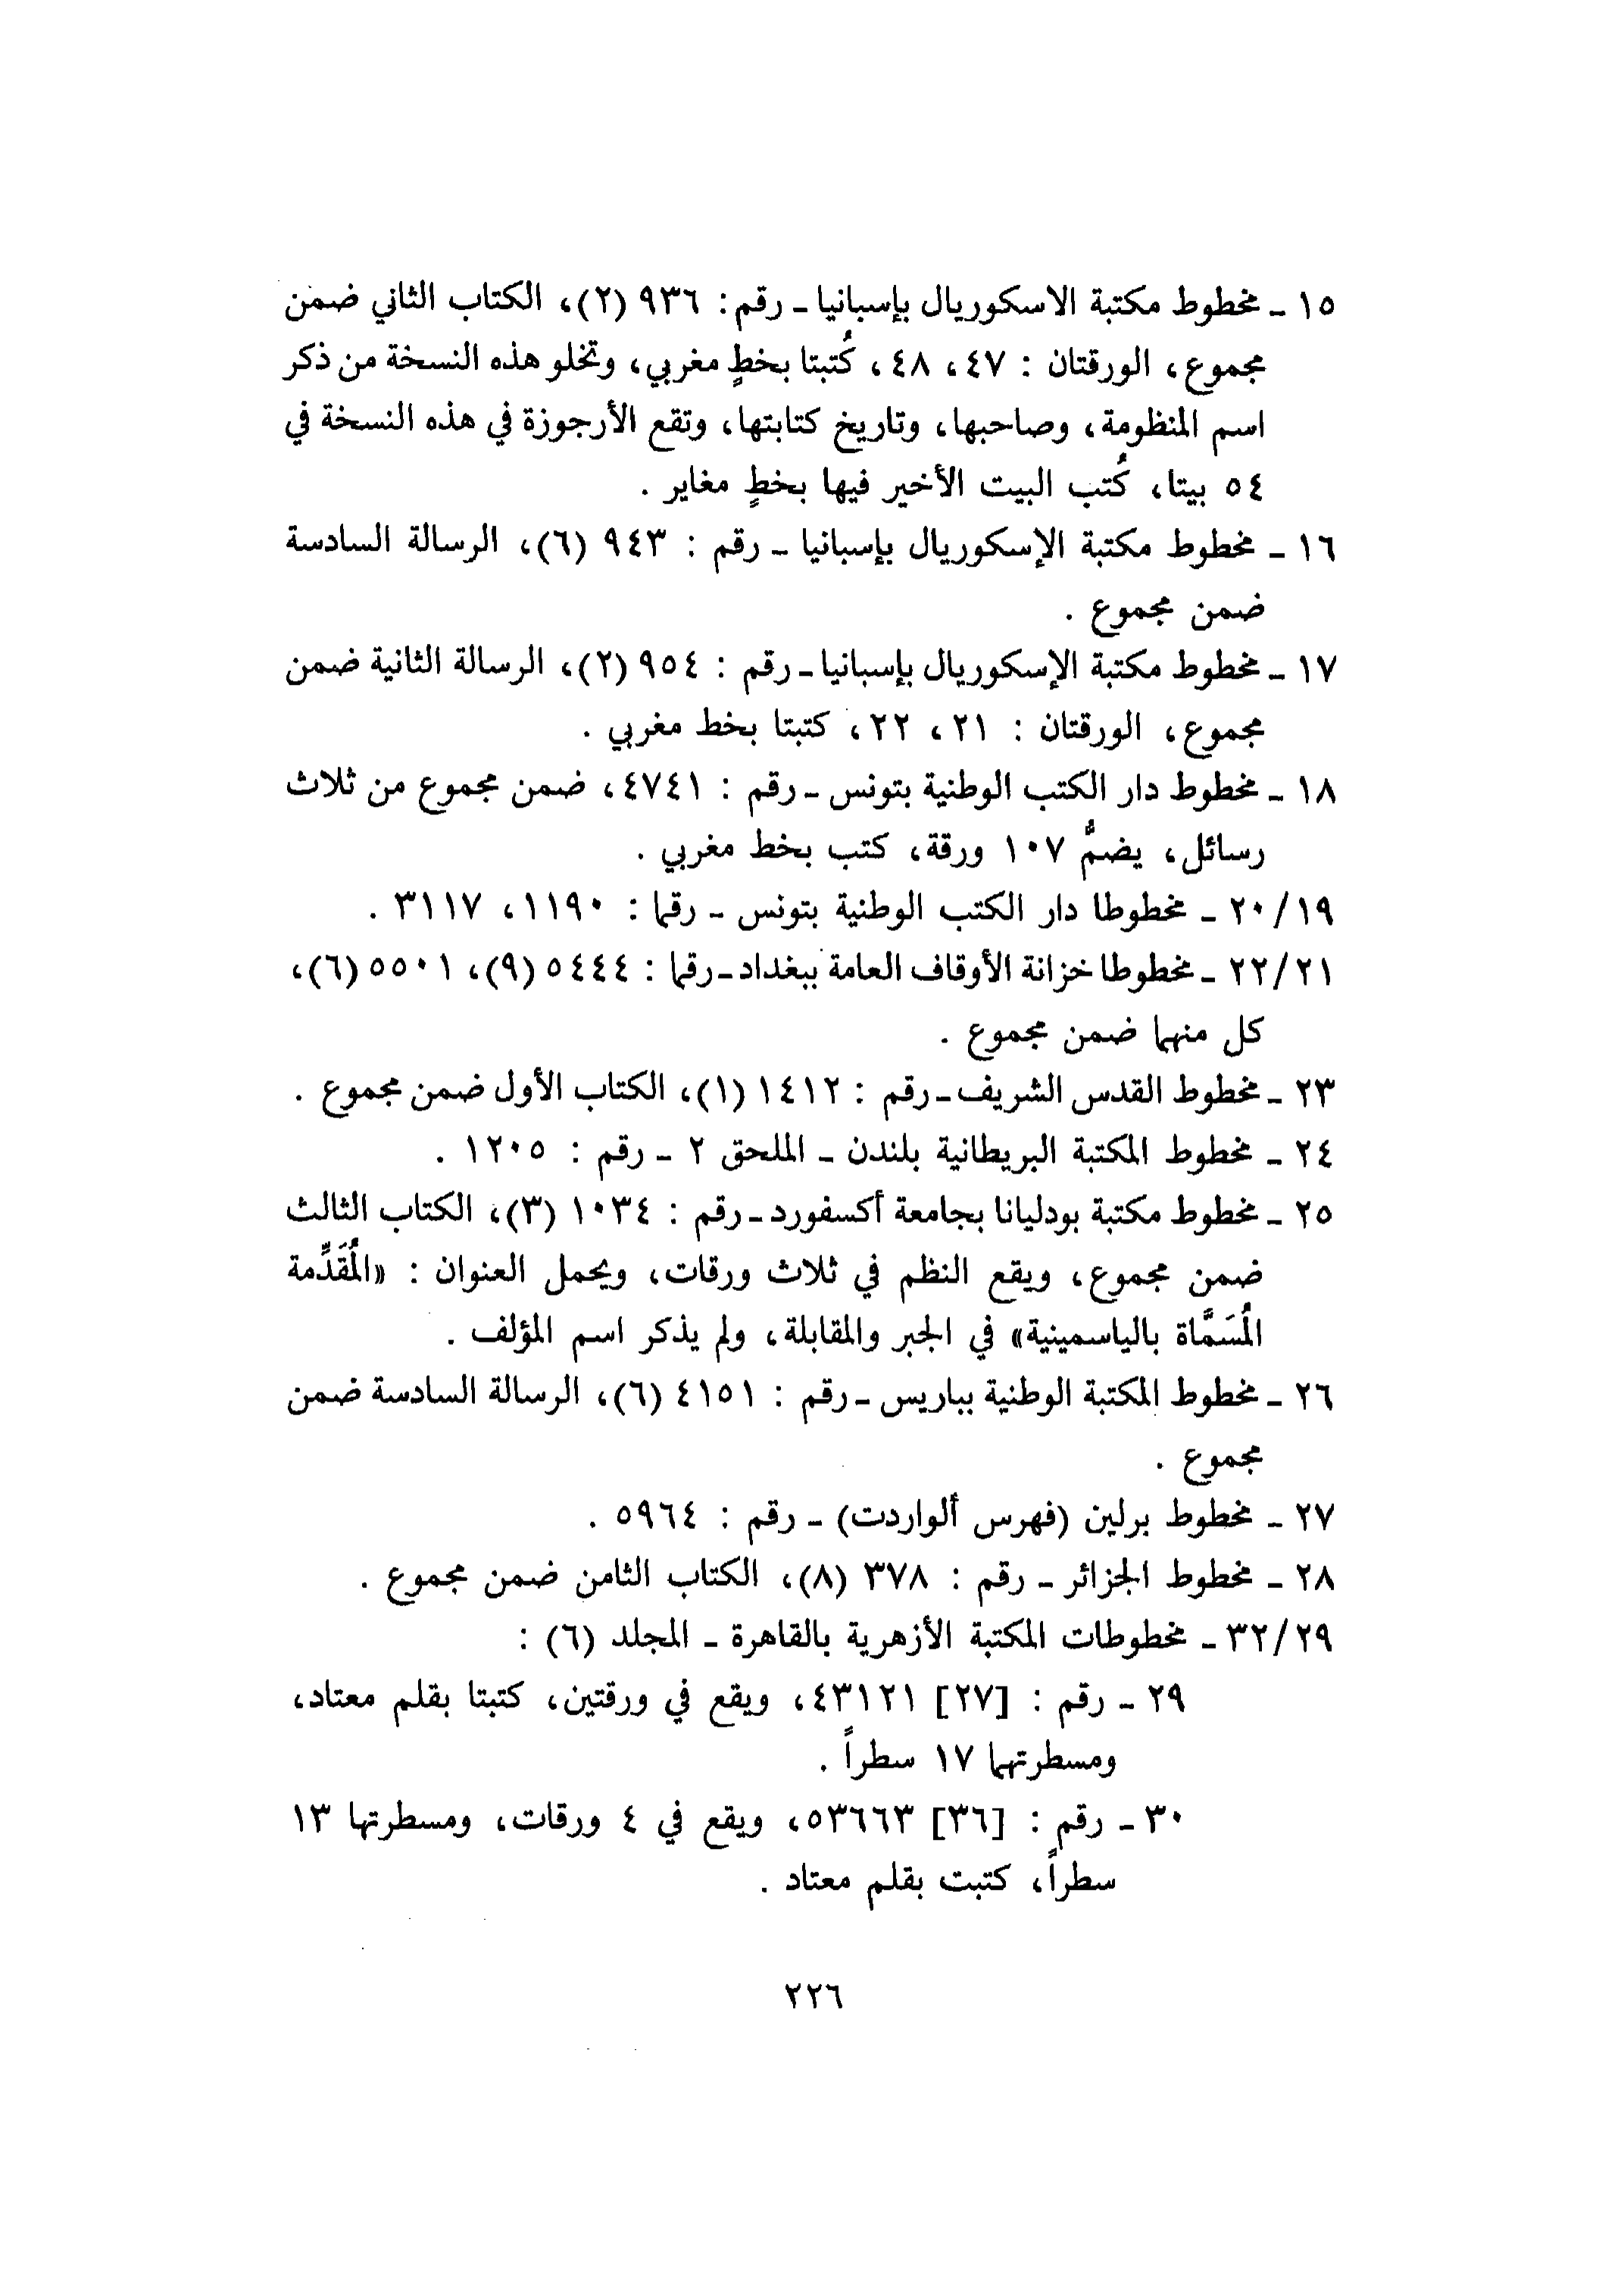 ١٥ ـ مخطوط مكتبة الاسكوريال بإسبانيا ـ رقم: ٩٣٦ (٢)، الكتاب الثاني ضمن
مجموع، الورقتان : ٤٧، ٤٨، كُتبتا بخطٍ مغربي، وتخلو هذه النسخة من ذكر
اسم المنظومة، وصاحبها، وتاريخ كتابتها، وتقع الأرجوزة في هذه النسخة في
٥٤ بيتا، كُتب البيت الأخير فيها بخطٍ مغاير .
١٦ ـ مخطوط مكتبة الإسكوريال بإسبانيا ـ رقم : ٩٤٣ (٦)، الرسالة السادسة
ضمن مجموع .
١٧ ـ مخطوط مكتبة الإسكوريال بإسبانيا ـ رقم : ٩٥٤ (٢)، الرسالة الثانية ضمن
مجموع، الورقتان : ٢١، ٢٢، كتبتا بخط مغربي .
١٨ ـ مخطوط دار الكتب الوطنية بتونس ـ رقم : ٤٧٤١، ضمن مجموع من ثلاث
رسائل، يضمُّ ١٠٧ ورقة، كتب بخط مغربي .
٢٠/١٩ ـ مخطوطا دار الكتب الوطنية بتونس ـ رقما : ١١٩٠، ٣١١٧ .
٢٢/٢١ ـ مخطوطا خزانة الأوقاف العامة ببغداد ـ رقما : ٥٤٤٤ (٩)، ٥٥٠١ (٦)،
كل منهما ضمن مجموع .
٢٣ ـ مخطوط القدس الشريف ـ رقم : ١٤١٢ (١)، الكتاب الأول ضمن مجموع .
٢٤ ـ مخطوط المكتبة البريطانية بلندن ـ الملحق ٢ ـ رقم : ١٢٠٥ .
٢٥ ـ مخطوط مكتبة بودليانا بجامعة أكسفورد ـ رقم : ١٠٣٤ (٣)، الكتاب الثالث
ضمن مجموع، ويقع النظم في ثلاث ورقات، ويحمل العنوان : «المُقَدِّمة
المُسَمَّاة بالياسمينية» في الجبر والمقابلة، ولم يذكر اسم المؤلف .
٢٦ ـ مخطوط المكتبة الوطنية بباريس ـ رقم : ٤١٥١ (٦)، الرسالة السادسة ضمن
مجموع .
٢٧ ـ مخطوط برلين (فهرس ألواردت) ـ رقم : ٥٩٦٤ .
٢٨ ـ مخطوط الجزائر ـ رقم : ٣٧٨ (٨)، الكتاب الثامن ضمن مجموع .
٣٢/٢٩ ـ مخطوطات المكتبة الأزهرية بالقاهرة ـ المجلد (٦) :
٢٩ ـ رقم : [٢٧] ٤٣١٢١، ويقع في ورقتين، كتبتا بقلم معتاد،
ومسطرتهما ١٧ سطراً .
٣٠ ـ رقم : [٣٦] ٥٣٦٦٣، ويقع في ٤ ورقات، ومسطرتها ١٣
سطراً، كتبت بقلم معتاد .
٢٢٦